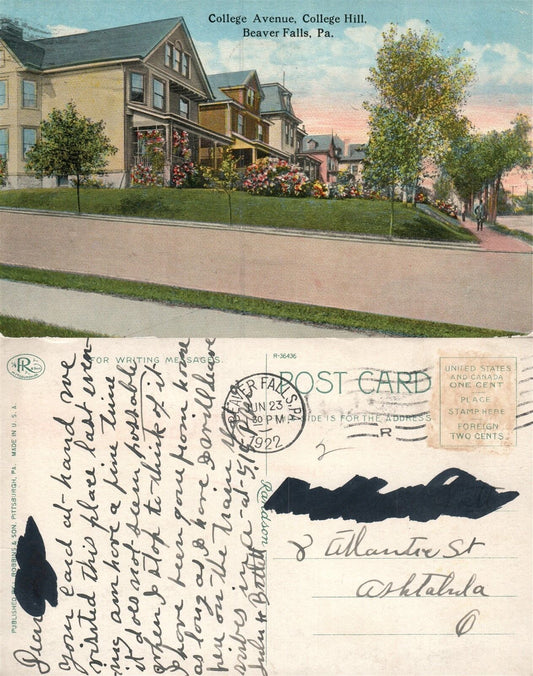 College Avenue, College Hill,
Beaver Falls, Pa.
FOR WRITING MESSAGES.
R-36436
POST CARD
THIS SIDE IS FOR THE ADDRESS
UNITED STATES
AND CANADA
ONE CENT
PLACE
STAMP HERE
FOREIGN
TWO CENTS
BEAVER FALLS, PA.
JUN 23
30 PM
1922
PUBLISHED BY ROBBINS & SON, PITTSBURGH, PA. MADE IN U.S.A.
Dear
your card at-hand we
visited this place last even-
ing am have a fine time
it does not seem possable
when I stop to think of it
I have been gone from home
as long as I have I will leave
here on the train
8 Atlantic St
Ashtabula
O